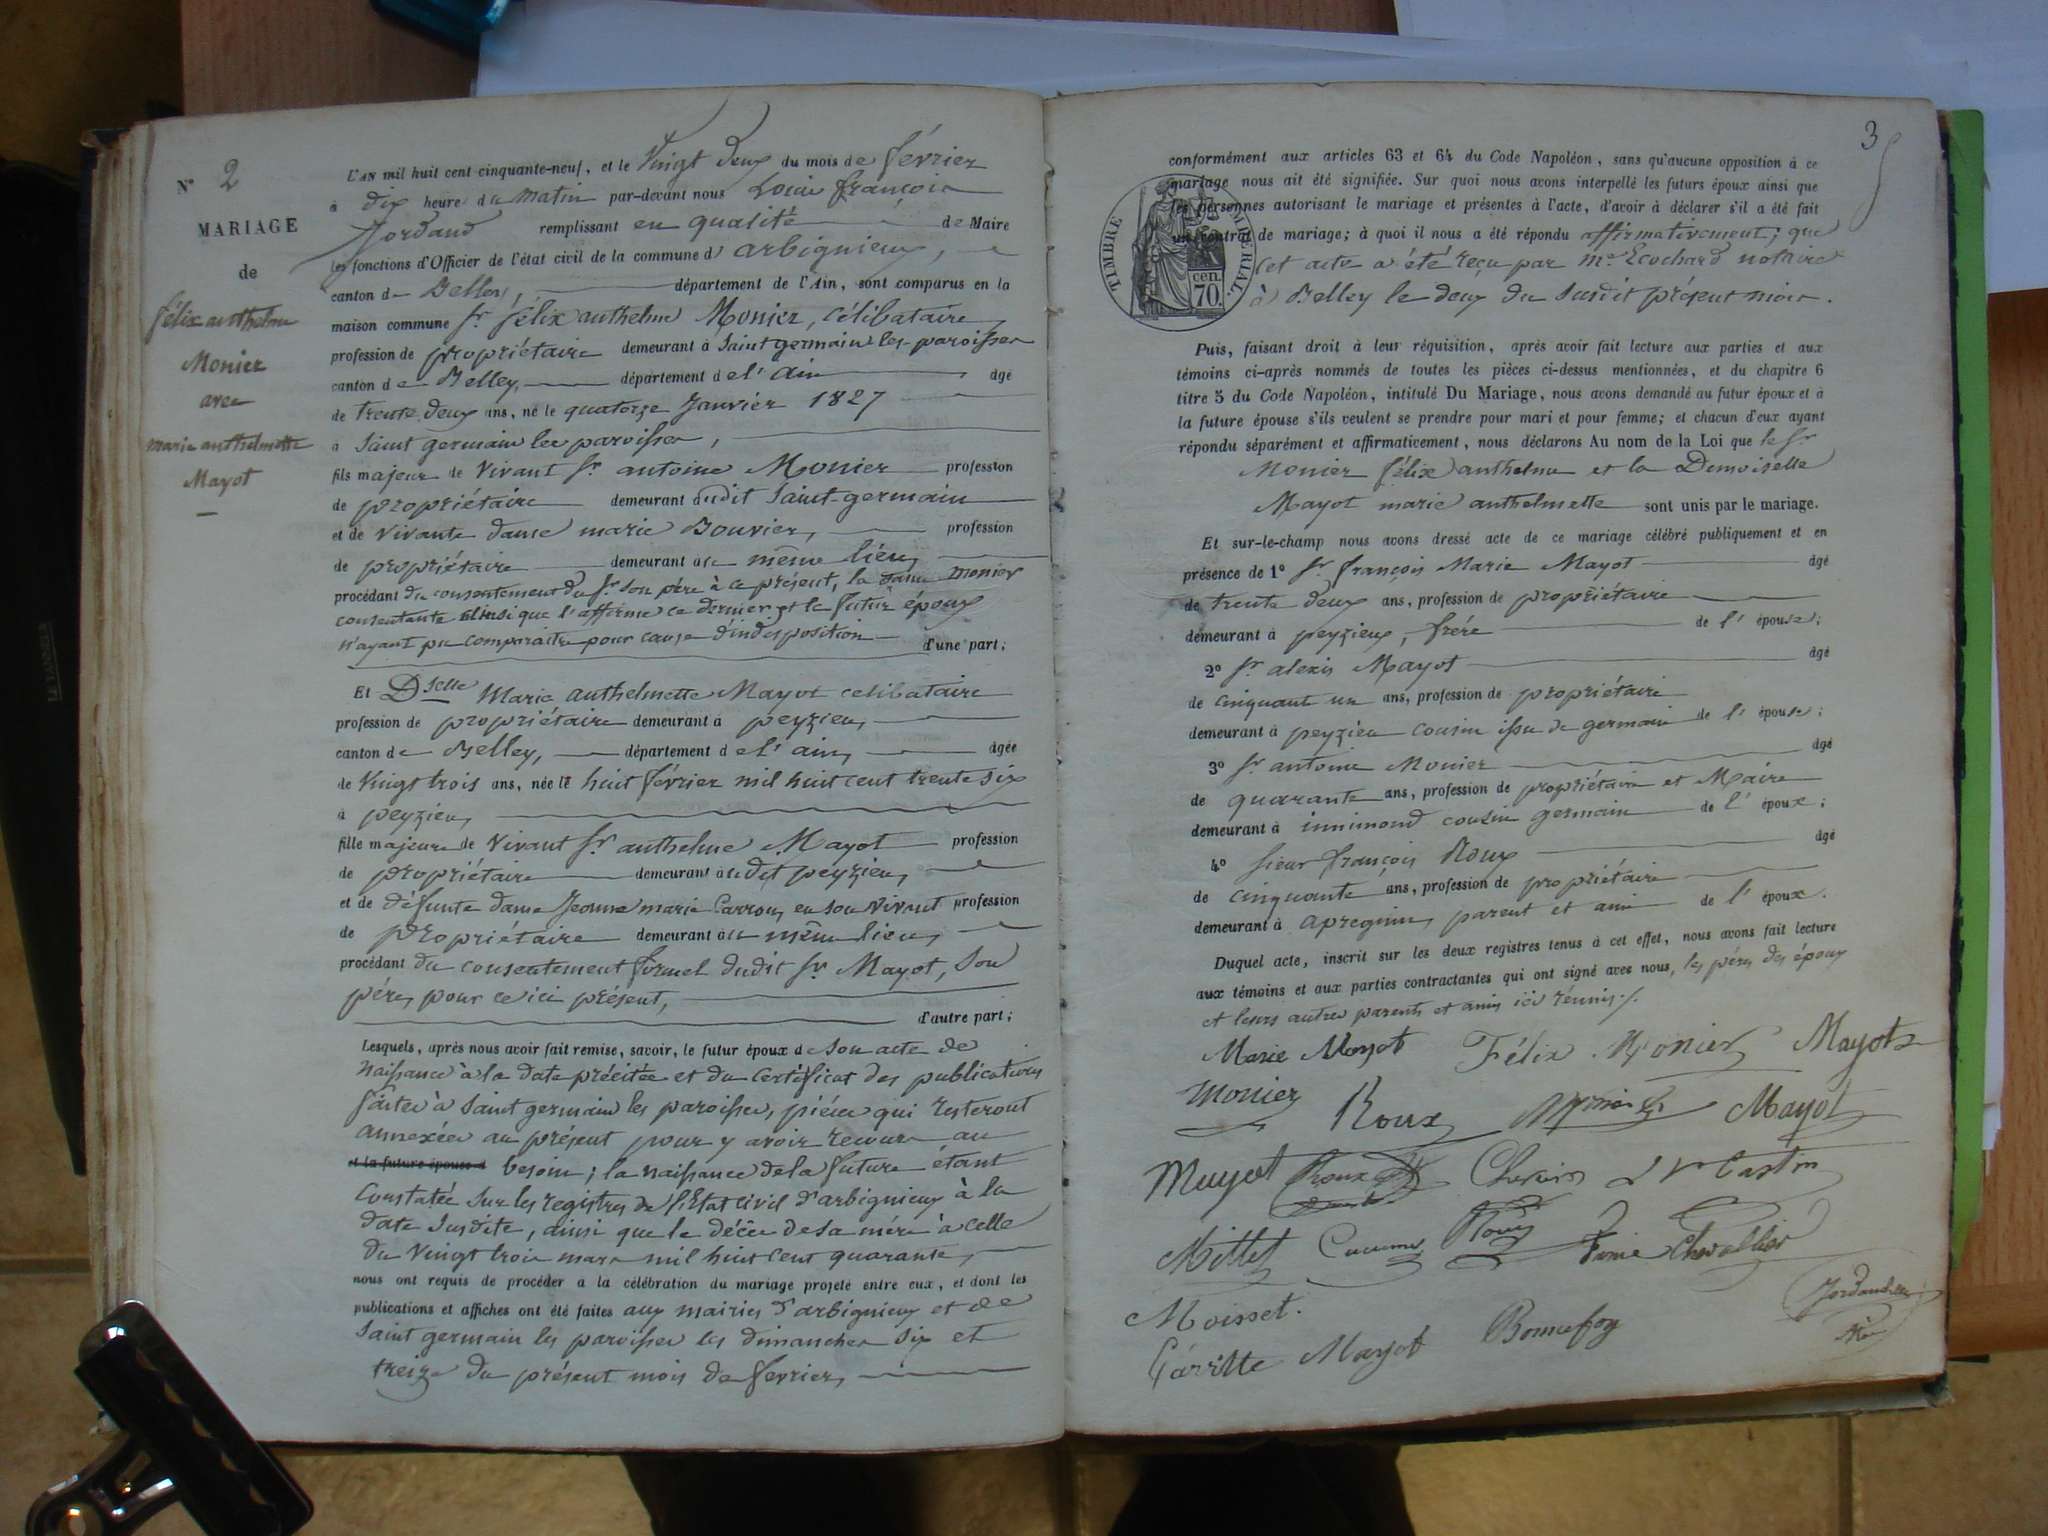 N° 2
MARIAGE
de
félix anthelme
Monier
avec
marie anthelmette
Mayot
L'AN mil huit cent cinquante-neuf, et le Vingt deux du mois de février
à dix heure du matin par-devant nous Louis françois
Jordand remplissant en qualité de Maire
les fonctions d'Officier de l'état civil de la commune d'arbignieux,
canton de Belley, département de l'Ain, sont comparus en la
maison commune Sr félix anthelme Monier, célibataire,
profession de propriétaire demeurant à Saint germain les paroisses
canton de Belley, département de l'ain âgé
de trente deux ans, né le quatorze Janvier 1827
à Saint germain les paroisses,
fils majeur de vivant Sr antoine Monier profession
de propriétaire demeurant audit Saint-germain
et de vivante dame marie Bouvier, profession
de propriétaire demeurant au même lieu,
procédant du consentement du Sr son père à ce présent, la dame monier
consentante ainsi que l'affirme ce dernier et le futur époux
n'ayant pu comparaître pour cause d'indisposition d'une part;
Et Dselle Marie anthelmette Mayot célibataire
profession de propriétaire demeurant à peyzieu,
canton de Belley, département de l'ain, âgée
de vingt trois ans, née le huit février mil huit cent trente six
à peyzieu,
fille majeure de vivant Sr anthelme Mayot profession
de propriétaire demeurant audit peyzieu,
et de défunte dame Jeanne marie Carron, en son vivant profession
de propriétaire demeurant au même lieu,
procédant du consentement formel dudit Sr Mayot, son
père, pour ce ici présent,
d'autre part;
Lesquels, après nous avoir fait remise, savoir, le futur époux de son acte de
naissance à la date précitée et du certificat des publications
faites à Saint germain les paroisses, pièces qui resteront
annexées au présent pour y avoir recours au
et la future épouse d besoin; la naissance de la future étant
constatée sur les registres de l'Etat civil d'arbignieux à la
date susdite, ainsi que le décès de sa mère à celle
du vingt trois mars mil huit cent quarante,
nous ont requis de procéder à la célébration du mariage projeté entre eux, et dont les
publications et affiches ont été faites aux mairies d'arbignieux et de
Saint germain les paroisses les dimanches six et
treize du présent mois de février,
3
conformément aux articles 63 et 64 du Code Napoléon, sans qu'aucune opposition à ce
mariage nous ait été signifiée. Sur quoi nous avons interpellé les futurs époux ainsi que
les personnes autorisant le mariage et présentes à l'acte, d'avoir à déclarer s'il a été fait
un contrat de mariage; à quoi il nous a été répondu affirmativement; que
cet acte a été reçu par me Ecochard notaire
à Belley le deux du susdit présent mois.
TIMBRE IMPÉRIAL.
70. cen.
Puis, faisant droit à leur réquisition, après avoir fait lecture aux parties et aux
témoins ci-après nommés de toutes les pièces ci-dessus mentionnées, et du chapitre 6
titre 5 du Code Napoléon, intitulé Du Mariage, nous avons demandé au futur époux et à
la future épouse s'ils veulent se prendre pour mari et pour femme; et chacun d'eux ayant
répondu séparément et affirmativement, nous déclarons Au nom de la Loi que le Sr
Monier félix anthelme et la Demoiselle
Mayot marie anthelmette sont unis par le mariage.
Et sur-le-champ nous avons dressé acte de ce mariage célébré publiquement et en
présence de 1° Sr françois Marie Mayot âgé
de trente deux ans, profession de propriétaire
demeurant à peyzieux, frère de l'épouse;
2° Sr alexis Mayot âgé
de cinquant un ans, profession de propriétaire
demeurant à peyzieu cousin issu de germain de l'épouse;
3° Sr antoine Monier âgé
de quarante ans, profession de propriétaire et Maire
demeurant à innimond cousin germain de l'époux;
4° Sieur françois Roux âgé
de cinquante ans, profession de propriétaire
demeurant à apregnin, parent et ami de l'époux.
Duquel acte, inscrit sur les deux registres tenus à cet effet, nous avons fait lecture
aux témoins et aux parties contractantes qui ont signé avec nous, les pères des époux
et leurs autres parents et amis ici réunis./.
Marie Mayot Félix Monier Mayot
Monier Roux Monier Mayot
Mayot Roux Castin
Millet Roux Fanie Chevallier
Moisset. Jordand
Mayot Bonnefoy